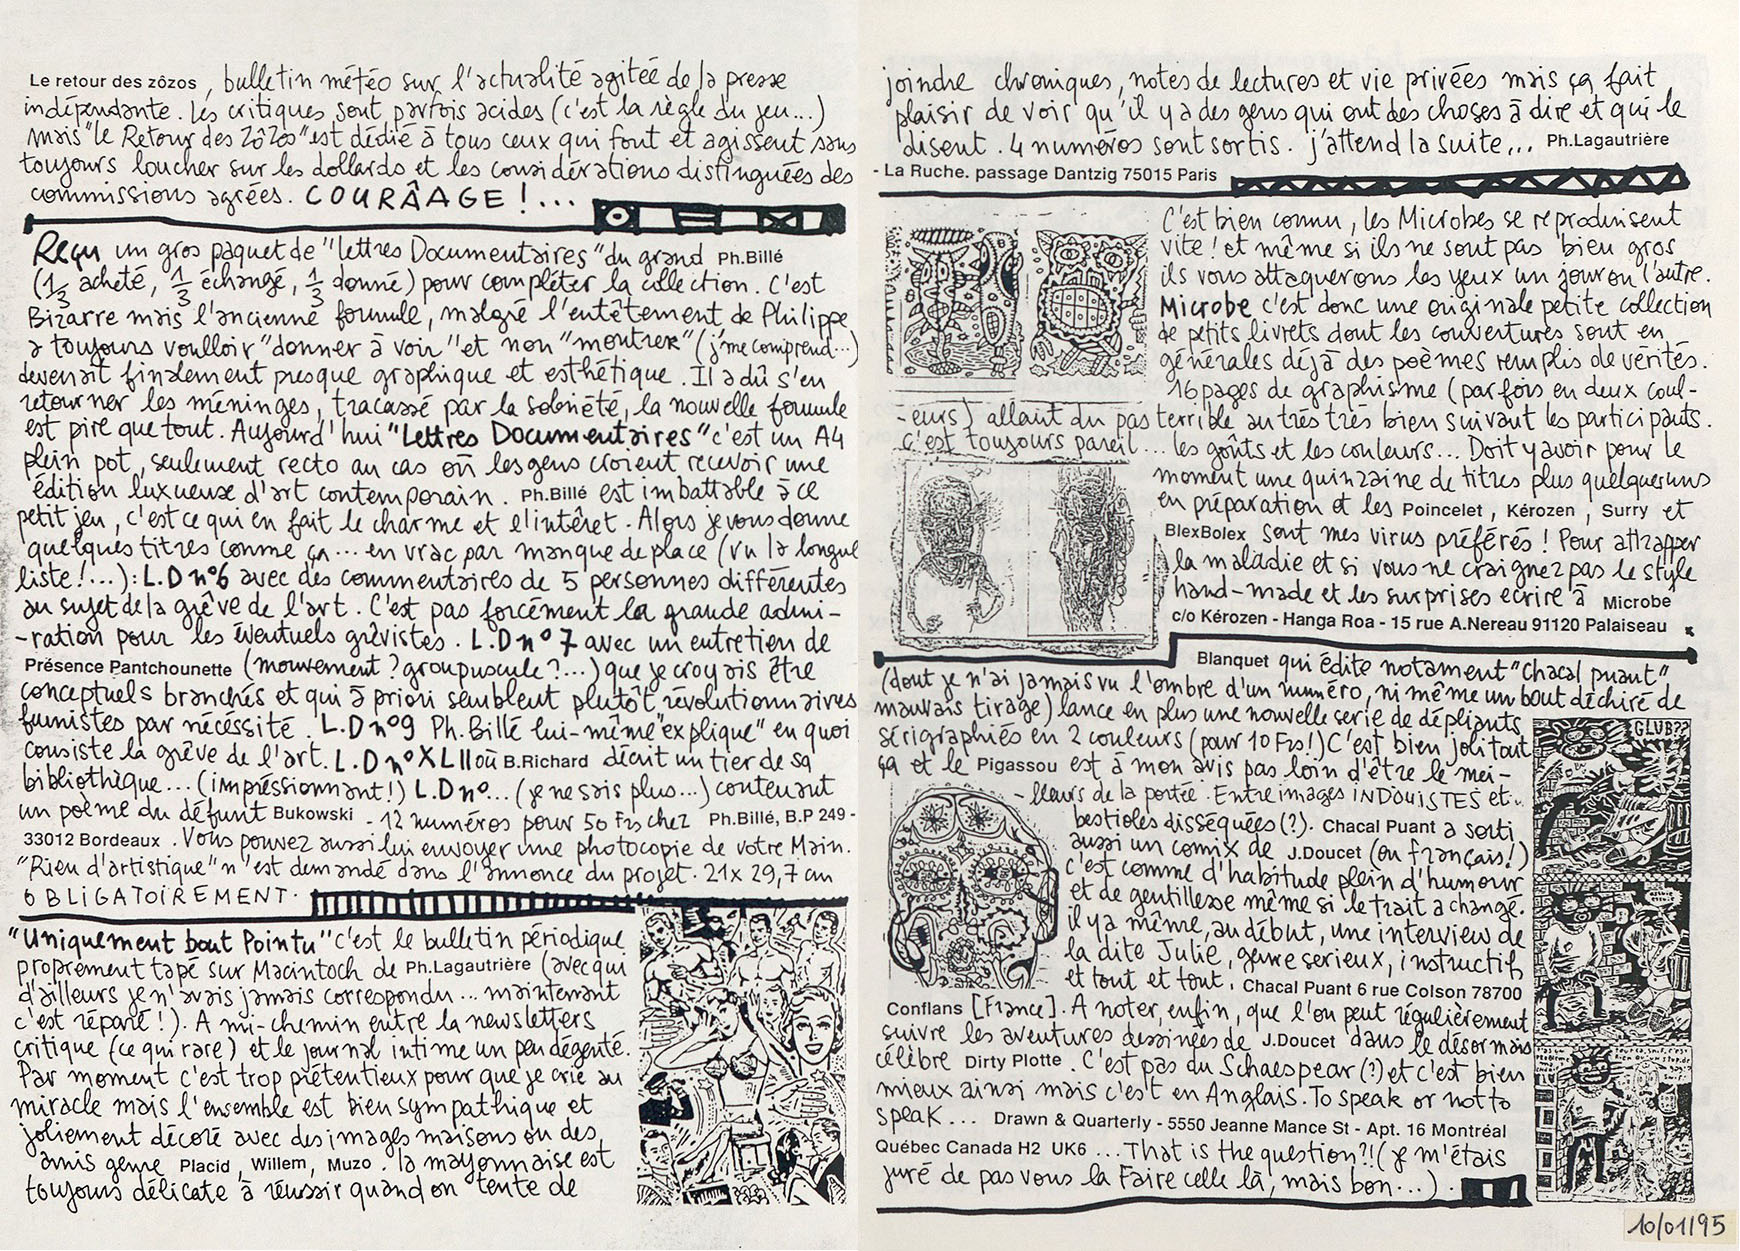 Le retour des zôzos, bulletin météo sur l'actualité agitée de la presse
indépendante. Les critiques sont parfois acides (c'est la règle du jeu...)
mais "le Retour des Zôzos" est dédié à tous ceux qui font et agissent sans
toujours loucher sur les dollards et les considérations distinguées des
commissions agréées. COURÂAGE !...
Reçu un gros paquet de "lettres Documentaires" du grand Ph.Billé
(1/3 acheté, 1/3 échangé, 1/3 donné) pour compléter la collection. C'est
Bizarre mais l'ancienne formule, malgré l'entêtement de Philippe
a toujours voulloir "donner à voir" et non "montrer" (j'me comprend...)
devenait finalement presque graphique et esthétique. Il a dû s'en
retourner les méninges, tracassé par la sobriété, la nouvelle formule
est pire que tout. Aujourd'hui "Lettres Documentaires" c'est un A4
plein pot, seulement recto au cas où les gens croient recevoir une
édition luxueuse d'art contemporain. Ph.Billé est imbattable à ce
petit jeu, c'est ce qui en fait le charme et l'intérêt. Alors je vous donne
quelques titres comme ça... en vrac par manque de place (vu la longue
liste !...) : L.D n°6 avec des commentaires de 5 personnes différentes
au sujet de la grève de l'art. C'est pas forcément la grande admi-
-ration pour les éventuels grévistes. L.D n°7 avec un entretien de
Présence Pantchounette (mouvement ? groupuscule ?...) que je croyais être
conceptuels branchés et qui à priori semblent plutôt révolutionnaires
fumistes par nécéssité. L.D n°9 Ph.Billé lui-même "explique" en quoi
consiste la grève de l'art. L.D n°XLII où B.Richard décrit un tier de sa
bibliothèque... (impréssionnant !) L.D n°... (je ne sais plus...) contenant
un poème du défunt Bukowski - 12 numéros pour 50 Frs chez Ph.Billé, B.P 249 -
33012 Bordeaux. Vous pouvez aussi lui envoyer une photocopie de votre Main.
"Rien d'artistique" n'est demandé dans l'annonce du projet. 21 x 29,7 cm
OBLIGATOIREMENT.
"Uniquement bout Pointu" c'est le bulletin périodique
proprement tapé sur Macintoch de Ph.Lagautrière (avec qui
d'ailleurs je n'avais jamais correspondu... maintenant
c'est réparé !). A mi-chemin entre la newsletters
critique (ce qui rare) et le journal intime un peu déganté.
Par moment c'est trop prétentieux pour que je crie au
miracle mais l'ensemble est bien sympathique et
joliement décoré avec des images maisons ou des
amis genre Placid, Willem, Muzo. la mayonnaise est
toujours délicate à réussir quand on tente de
joindre chroniques, notes de lectures et vie privées mais ça fait
plaisir de voir qu'il y a des gens qui ont des choses à dire et qui le
disent. 4 numéros sont sortis. j'attend la suite... Ph.Lagautrière
- La Ruche. passage Dantzig 75015 Paris
C'est bien connu, les Microbes se reproduisent
vite ! et même si ils ne sont pas bien gros
ils vous attaquerons les yeux un jour ou l'autre.
Microbe c'est donc une originale petite collection
de petits livrets dont les couvertures sont en
générales déjà des poèmes remplis de vérités.
16 pages de graphisme (parfois en deux coul-
-eurs) allant du pas terrible au très très bien suivant les participants.
c'est toujours pareil... les goûts et les couleurs... Doit y avoir pour le
moment une quinzaine de titres plus quelqueruns
en préparation et les Poincelet, Kérozen, Surry et
BlexBolex sont mes virus préférés ! Pour attrapper
la maladie et si vous ne craignez pas le style
hand-made et les surprises ecrire à Microbe
c/o Kérozen - Hanga Roa - 15 rue A.Nereau 91120 Palaiseau
Blanquet qui édite notament "Chacal puant"
(dont je n'ai jamais vu l'ombre d'un numéro, ni même un bout déchiré de
mauvais tirage) lance en plus une nouvelle serie de dépliants
sérigraphiés en 2 couleurs (pour 10 Frs !) C'est bien joli tout
ça et le Pigassou est à mon avis pas loin d'être le mei-
-lleurs de la portée. Entre images INDOUISTES et..
bestioles disséquées (?). Chacal Puant a sorti
aussi un comix de J.Doucet (en français !)
c'est comme d'habitude plein d'humour
et de gentillesse même si le trait a changé.
il y a même, au début, une interview de
la dite Julie, genre serieux, instructif
et tout et tout. Chacal Puant 6 rue Colson 78700
Conflans [France]. A noter, enfin, que l'on peut régulièrement
suivre les aventures dessinées de J.Doucet dans le désormais
célèbre Dirty Plotte. C'est pas du Schaespear (?) et c'est bien
mieux ainsi mais c'est en Anglais. To speak or not to
speak... Drawn & Quarterly - 5550 Jeanne Mance St - Apt. 16 Montréal
Québec Canada H2 UK6 ... That is the question ?! (je m'étais
juré de pas vous la Faire celle là, mais bon...).
GLUB??
10/01/95